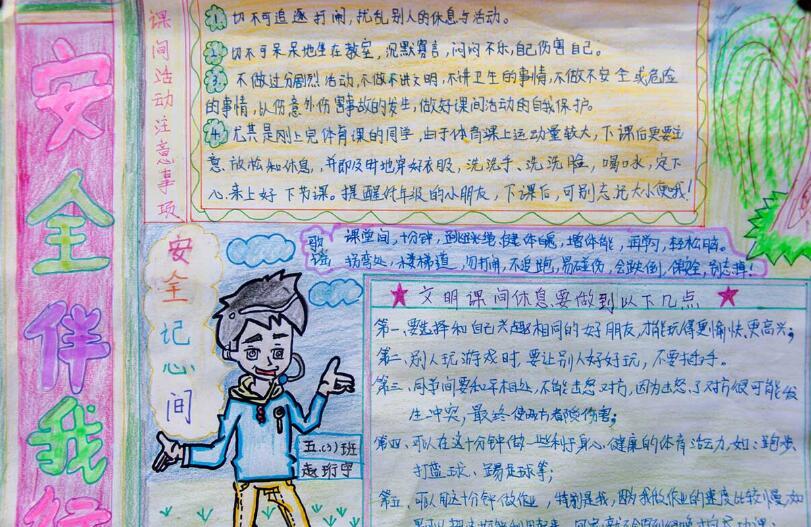 安全伴我行
课间活动注意事项
1、切不可追逐打闹，扰乱别人的休息与活动。
2、切不可呆呆地坐在教室，沉默寡言，闷闷不乐，自己伤害自己。
3、不做过分剧烈活动，不做不讲文明，不讲卫生的事情，不做不安全或危险
的事情，以防意外伤害事故的发生，做好课间活动的自我保护。
4、尤其是刚上完体育课的同学，由于体育课上运动量较大，下课后更要注
意，放松和休息，并即及时地穿好衣服，洗洗手、洗洗脸，喝口水，定下
心，来上好下节课。提醒低年级的小朋友，下课后，可别忘记大小便哦！
安全记心间
歌谣
课堂间，十分钟，跳跳绳，健体魄，增体能，再学习，轻松脑。
拐弯处，楼梯道，勿打闹，不追跑，易碰伤，会跌倒，
文明课间休息要做到以下几点
第一、要选择和自己兴趣相同的好朋友，才能玩得更愉快、更高兴；
第二、别人玩游戏时，要让别人好好玩，不要插手。
第三、同学间要和平相处，不能击怒对方，因为击怒了对方便可能发
生冲突，最终使两方者险伤害；
第四、可以在这十分钟做一些利于身心健康的体育活动，如：跑步、
打蓝球、踢足球等；
第五、可以用这十分钟做作业，特别是我，因为我做作业的速度比较慢，如
五、(3)班
赵珩宇